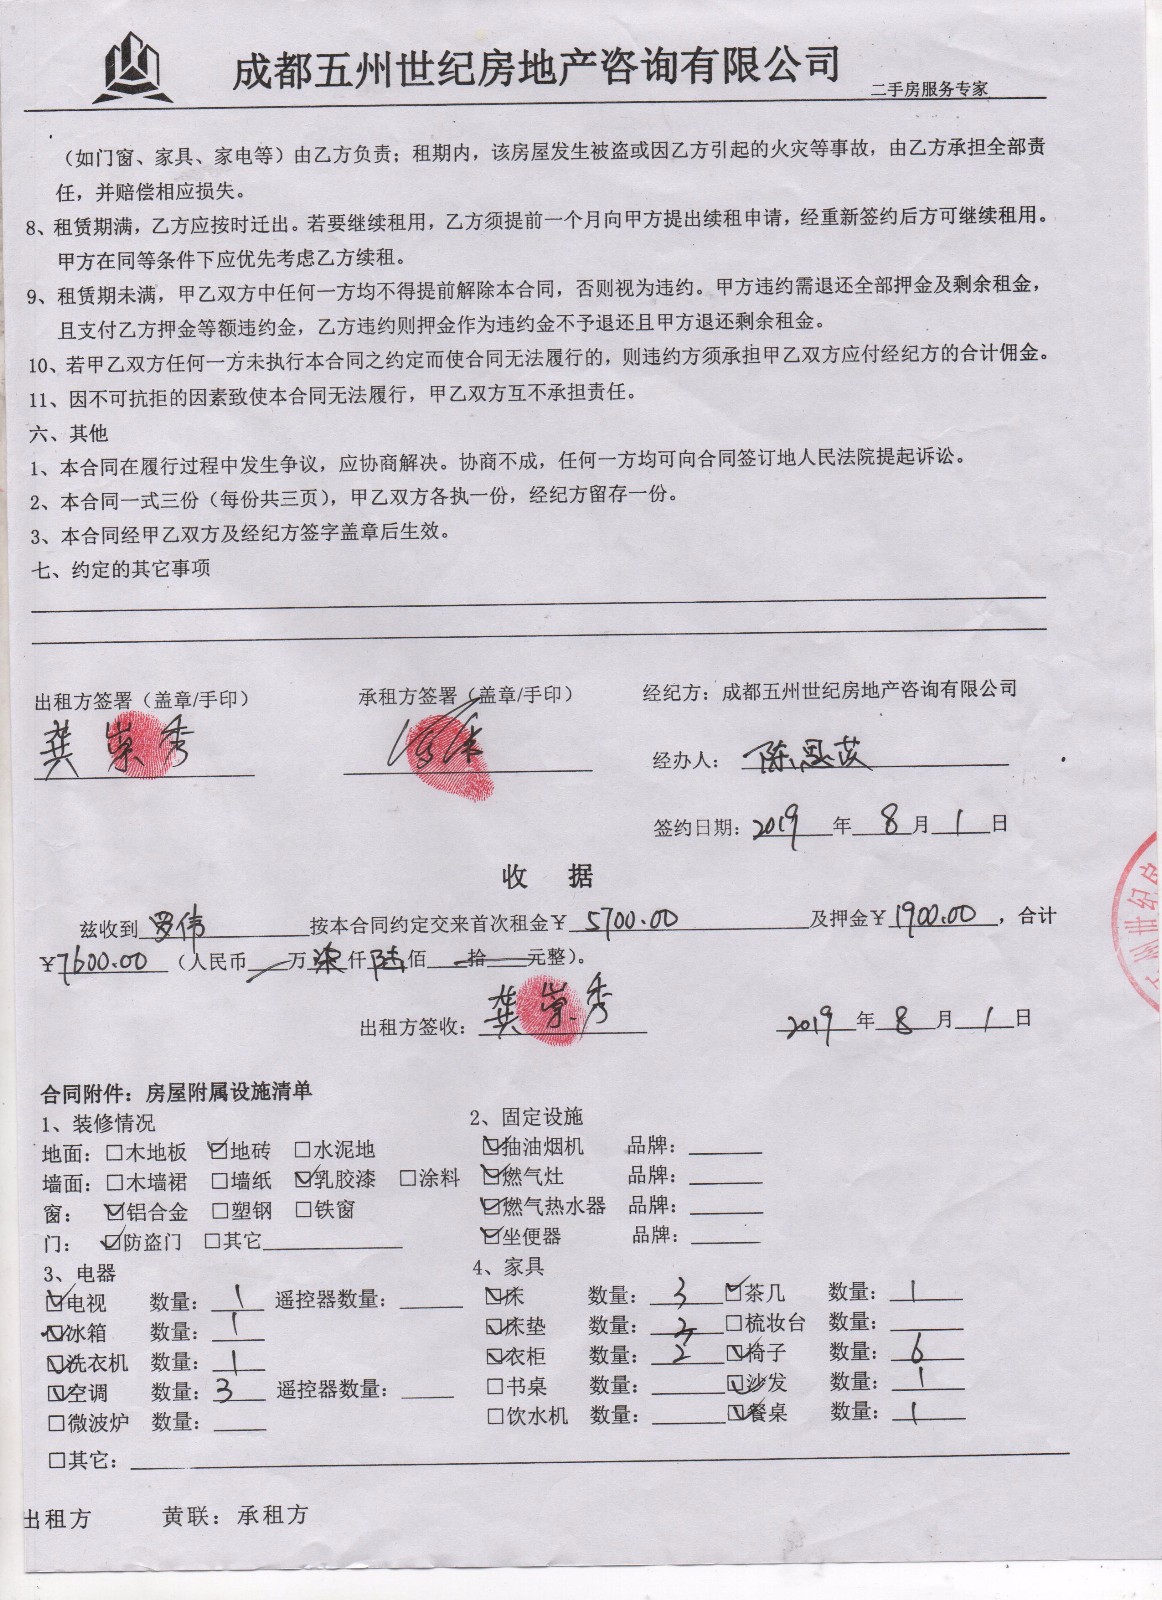 成都五州世纪房地产咨询有限公司
二手房服务专家
（如门窗、家具、家电等）由乙方负责；租期内，该房屋发生被盗或因乙方引起的火灾等事故，由乙方承担全部责
任，并赔偿相应损失。
8、租赁期满，乙方应按时迁出。若要继续租用，乙方须提前一个月向甲方提出续租申请，经重新签约后方可继续租用。
甲方在同等条件下应优先考虑乙方续租。
9、租赁期未满，甲乙双方中任何一方均不得提前解除本合同，否则视为违约。甲方违约需退还全部押金及剩余租金，
且支付乙方押金等额违约金，乙方违约则押金作为违约金不予退还且甲方退还剩余租金。
10、若甲乙双方任何一方未执行本合同之约定而使合同无法履行的，则违约方须承担甲乙双方应付经纪方的合计佣金。
11、因不可抗拒的因素致使本合同无法履行，甲乙双方互不承担责任。
六、其他
1、本合同在履行过程中发生争议，应协商解决。协商不成，任何一方均可向合同签订地人民法院提起诉讼。
2、本合同一式三份（每份共三页），甲乙双方各执一份，经纪方留存一份。
3、本合同经甲乙双方及经纪方签字盖章后生效。
七、约定的其它事项
出租方签署（盖章/手印） 承租方签署（盖章/手印） 经纪方：成都五州世纪房地产咨询有限公司
龚崇秀 经办人：陈思茂
签约日期：2019年8月1日
收 据
兹收到罗伟按本合同约定交来首次租金￥5700.00及押金￥1900.00，合计
￥7600.00（人民币 万柒仟陆佰 拾 元整）。
出租方签收：龚崇秀 2019年8月1日
州世纪房
合同附件：房屋附属设施清单
1、装修情况 2、固定设施
地面：□木地板 ☑地砖 □水泥地 ☑抽油烟机 品牌：
墙面：□木墙裙 □墙纸 ☑乳胶漆 □涂料 ☑燃气灶 品牌：
窗： ☑铝合金 □塑钢 □铁窗 ☑燃气热水器 品牌：
门： ☑防盗门 □其它 ☑坐便器 品牌：
3、电器 4、家具
☑电视 数量：1 遥控器数量： ☑床 数量：3 ☑茶几 数量：1
☑冰箱 数量：1 ☑床垫 数量：3 □梳妆台 数量：
☑洗衣机 数量：1 ☑衣柜 数量：2 ☑椅子 数量：6
☑空调 数量：3 遥控器数量： □书桌 数量： ☑沙发 数量：1
□微波炉 数量： □饮水机 数量： ☑餐桌 数量：1
□其它：
出租方 黄联：承租方